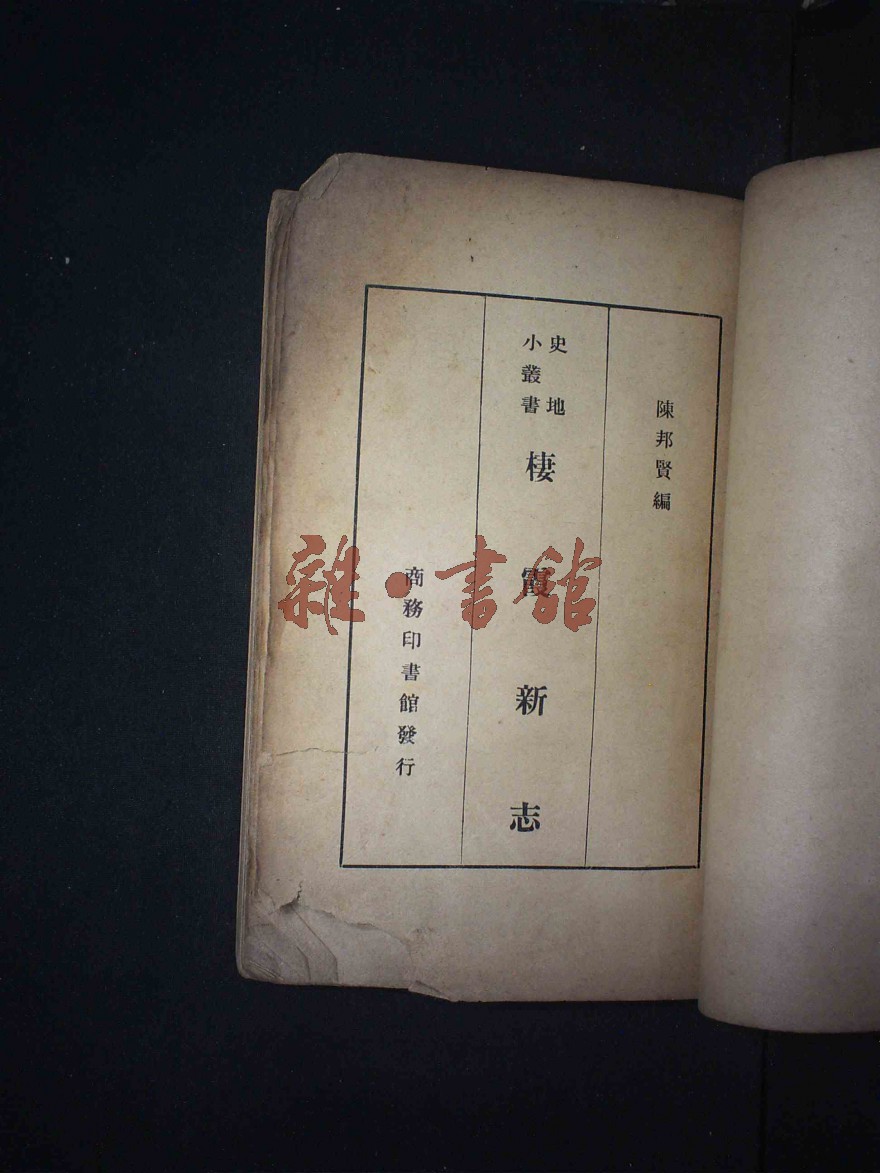 陳邦賢編
史地
小叢書
棲霞新志
商務印書館發行
雜·書館